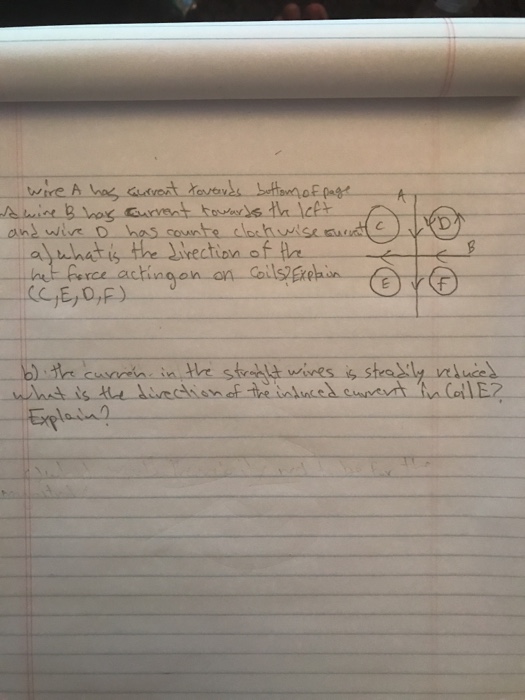 wire A has current towards bottom of page A
wire B has current towards the left
and wire D has counte clockwise current C D
a) what is the direction of the B
net force acting on on coils? Explain
(C, E, D, F) E F
b) the curren. in the straight wires is steadily reduced
what is the direction of the induced current in Coil E?
Explain?